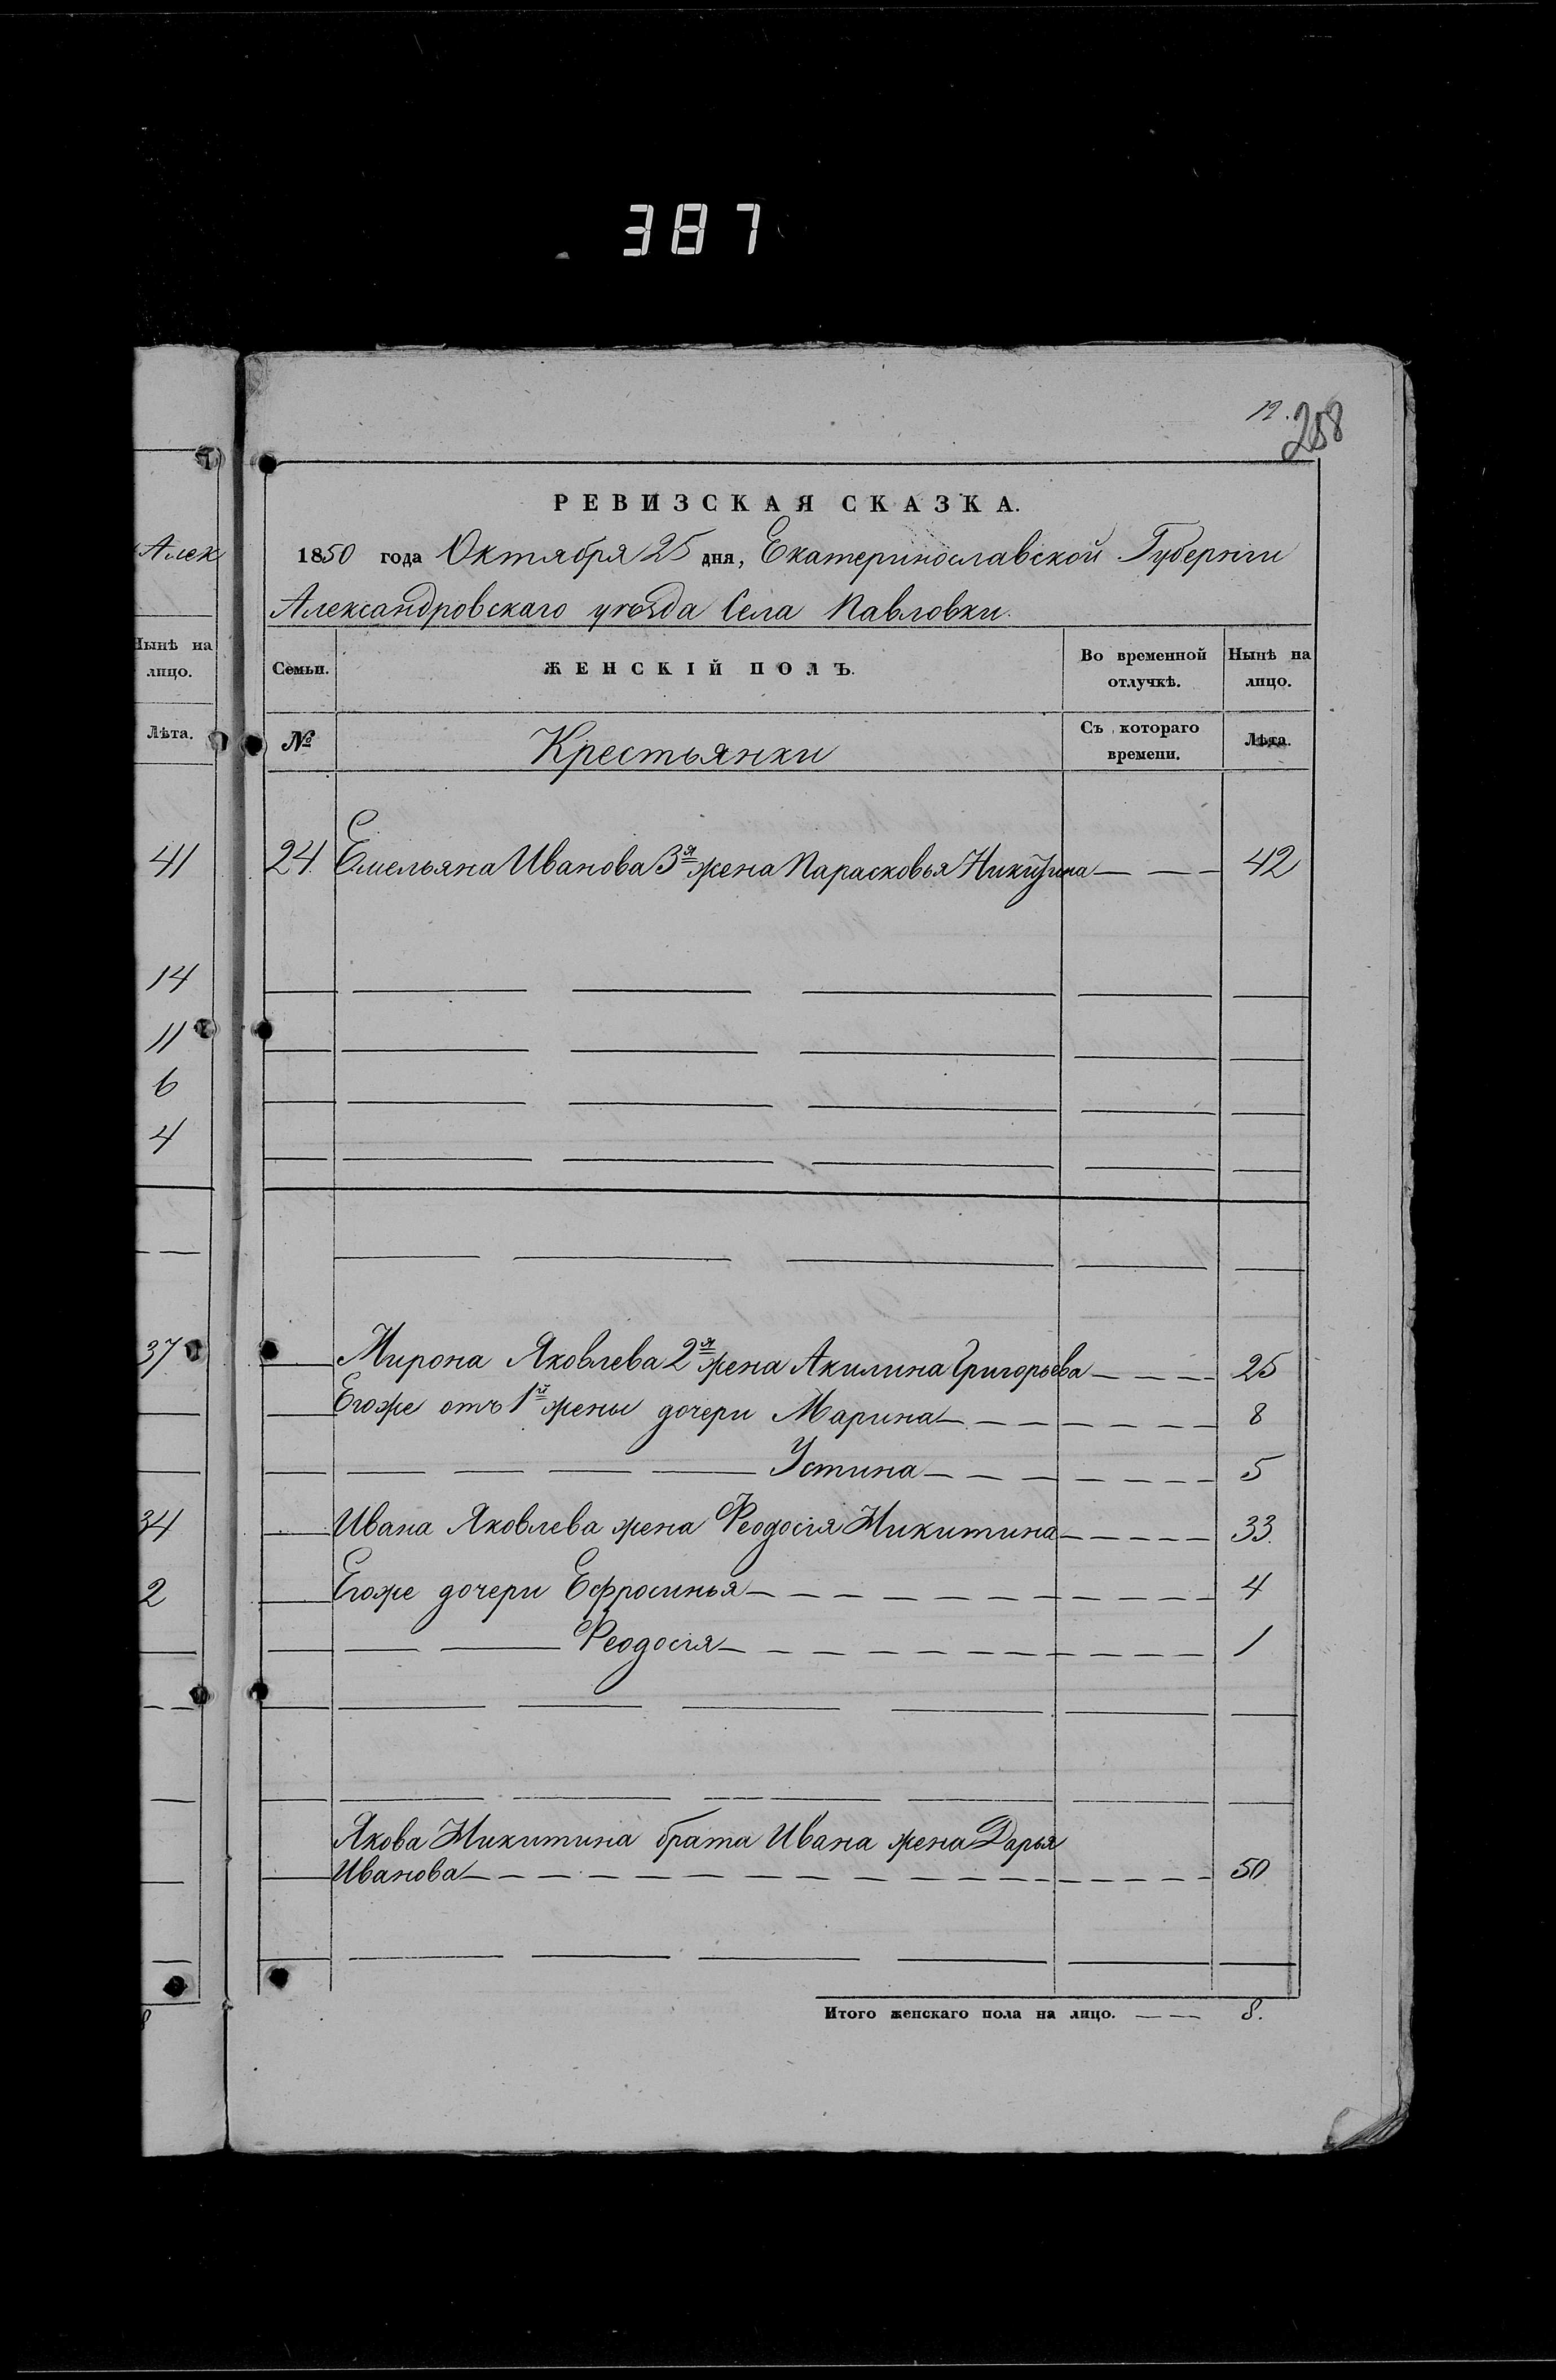 387
12.
258
РЕВИЗСКАЯ СКАЗКА.
1850 года Октября 25 дня, Екатеринославской Губернiи
Александровскаго уѣзда Села Павловки.
Семьи. ЖЕНСКІЙ ПОЛЪ. Во временной отлучкѣ. Нынѣ на лицо.
№ Крестьянки Съ котораго времени. Лѣта.
24. Емельяна Иванова 3я жена Парасковья Никитина 42
Мирона Яковлева 2я жена Акилина Григорьева 25
Егоже отъ 1й жены дочери Марина 8
Устина 5
Ивана Яковлева жена Феодосiя Никитина 33.
Егоже дочери Ефросинья 4
Феодосiя 1
Якова Никитина брата Ивана жена Дарья
Иванова 50
Итого женскаго пола на лицо. 8.
Алек
Нынѣ на
лицо.
Лѣта.
41
14
11
6
4
37
34
2
8